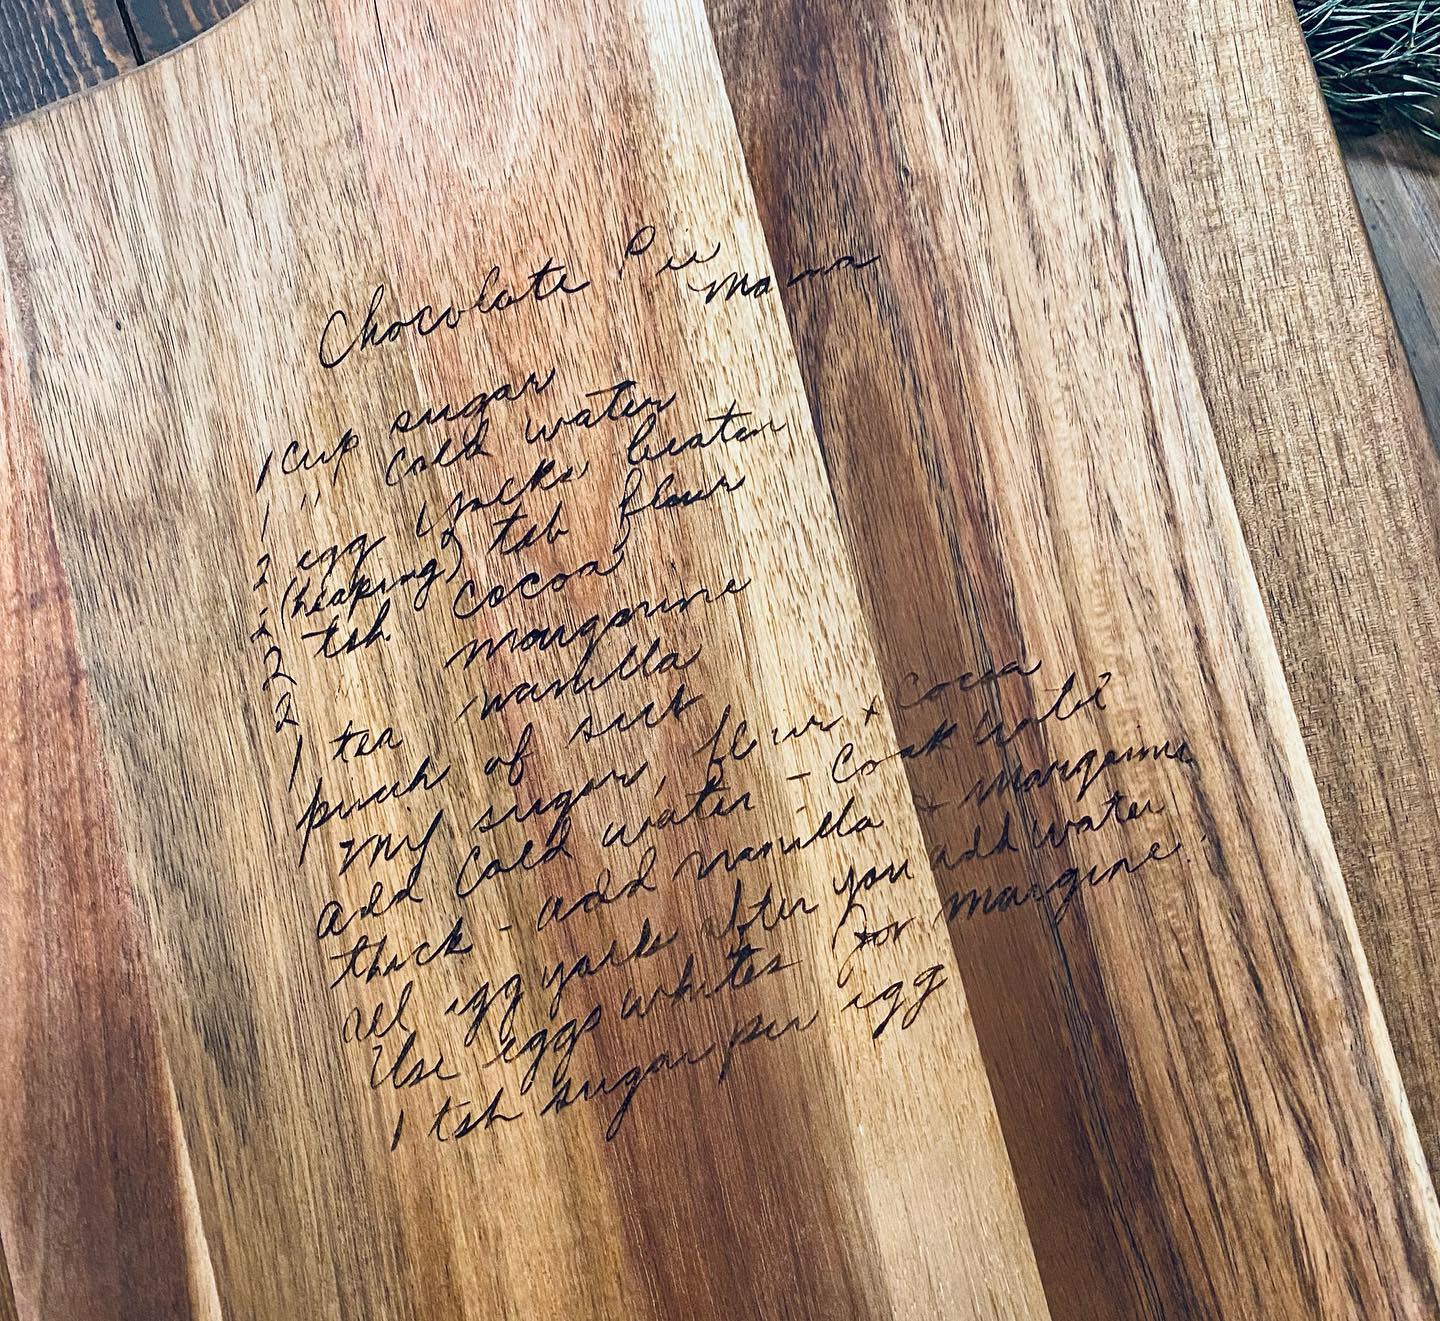 Chocolate Pie
Mama
1 cup sugar
1 " cold water
2 egg yolks beaten
2 (heaping) tsb flour
2 tsb cocoa
2 margarine
1 tea vanilla
pinch of salt
mix sugar, flour + cocoa
add cold water - cook until
thick - add vanilla + margarine
all egg yolks after you add water
Use eggs whites for margine.
1 tsb sugar per egg